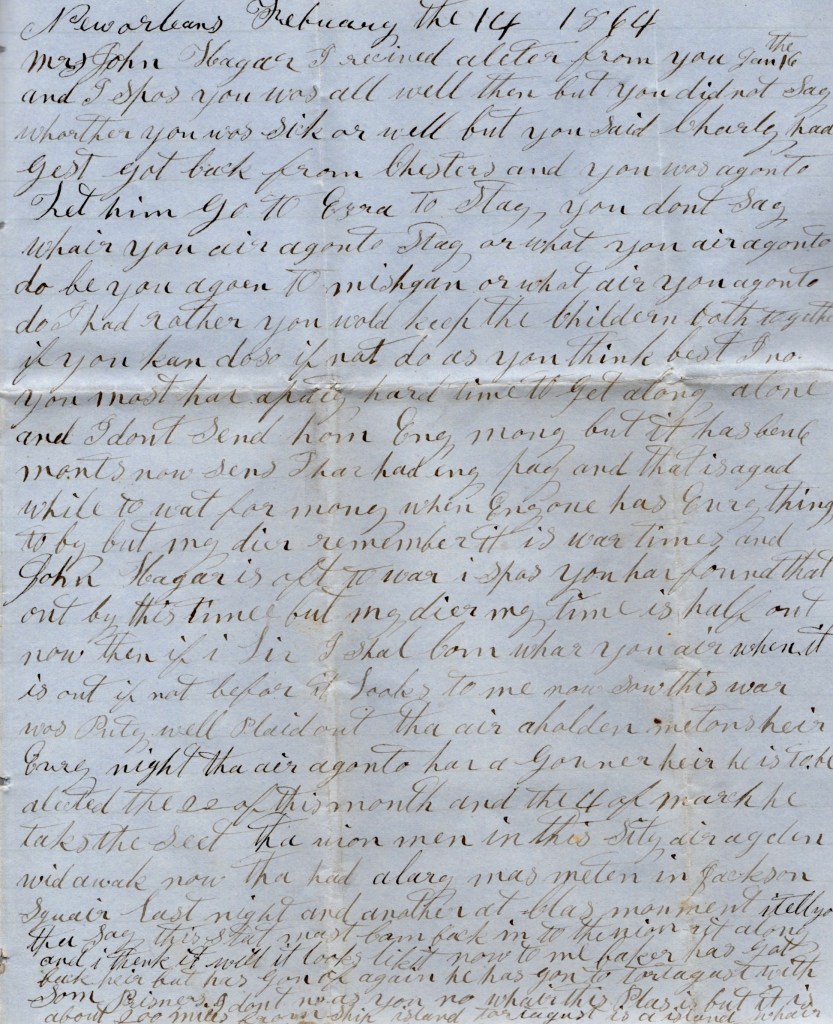 Neworleans February the 14 1864
Mrs John Hagar I recived aleter from you Jan the 16
and I spos you was all well then but you did not Say
whorther you was Sik or well but you Said Charly had
gest got back from Chesters and you was agonto
Let him Go to Ezra to Stay, you dont Say
whair you air agonto Stay or what you air agonto
do be you agoen to mishgan or what air you agonto
do I had rather you wold keep the Childern both togethe
if you kan do so if not do as you think best I no
you most har a prity hard time to get along alone
and I dont Send hom Eny mony but it has ben 6
monts now sens I har had eny pay and that is agad
while to wat for mony when Enyone has Evrything
to by but my dier remember it is war times and
John Hagar is oft to war i spos you har found that
out by this time but my dier my time is half out
now then if i Liv I shal Com whar you air when it
is out if not befor it Looks to me now Sow this war
was Prity well Plaid out tha air aholden metons heir
Evry night tha air agonto har a Govner heir he is to be
alected the 22 of this month and the 4 of march he
taks the Seet tha unon men in this Sity air agden
wid awak now tha had alarg mas meten in Jackson
Squair Last night and another at Clas monment i tell you
tha Say this Stat mast Cam back in to the union rit along
and i think it will it looks lik it now to me baker has got
back heir but has gon of again he has gon to tortagust with
Som Prisners I dont no as you no whair this Plas is but it is
about 200 miles from Ship island tortagust is a island whair